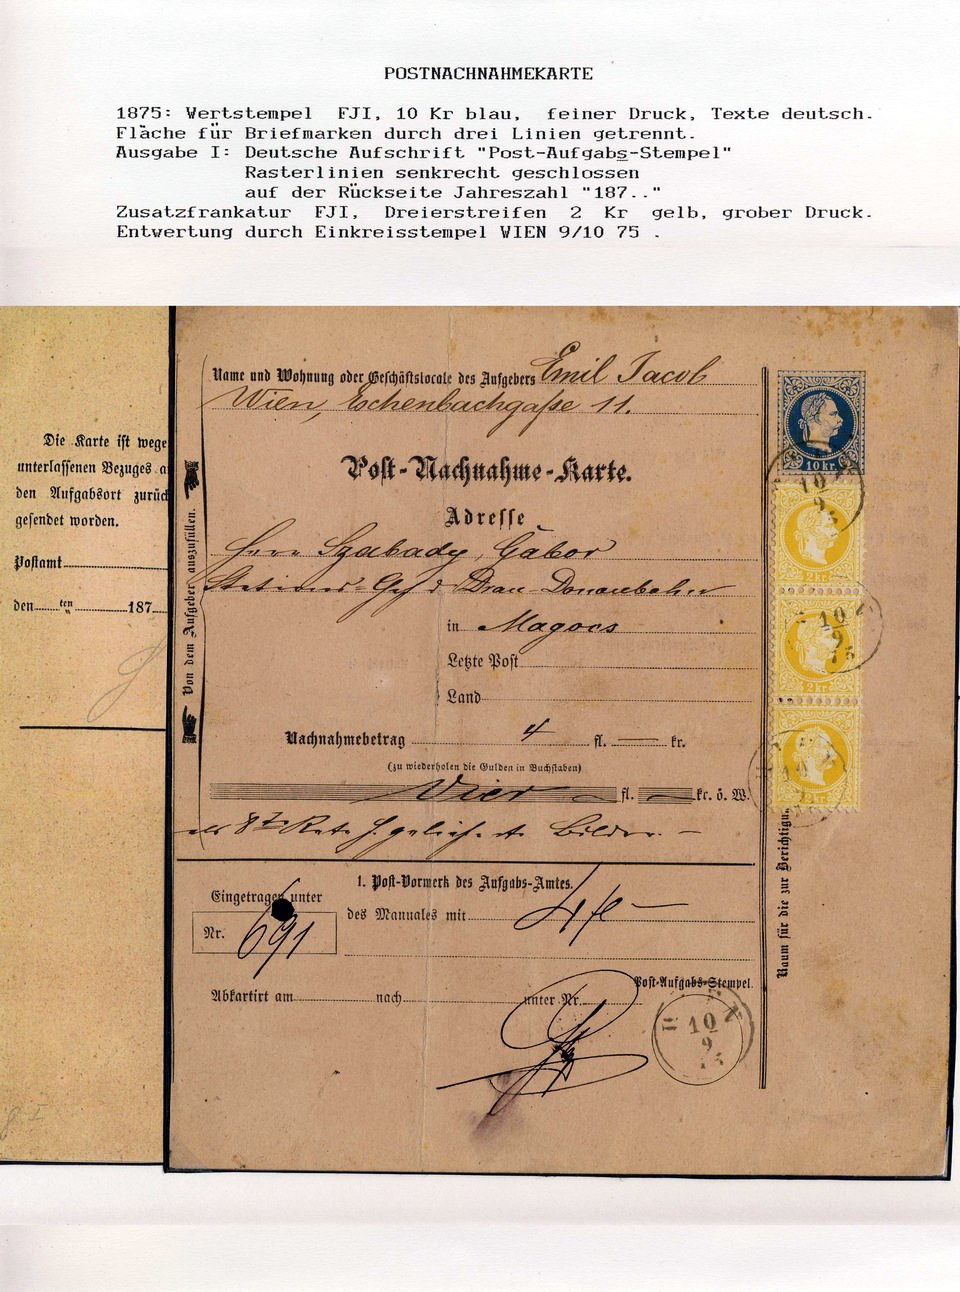 POSTNACHNAHMEKARTE
1875: Wertstempel FJI, 10 Kr blau, feiner Druck, Texte deutsch.
Fläche für Briefmarken durch drei Linien getrennt.
Ausgabe I: Deutsche Aufschrift "Post-Aufgabs-Stempel"
Rasterlinien senkrecht geschlossen
auf der Rückseite Jahreszahl "187.."
Zusatzfrankatur FJI, Dreierstreifen 2 Kr gelb, grober Druck.
Entwertung durch Einkreisstempel WIEN 9/10 75 .
Die Karte ist wege
unterlassenen Bezuges a
den Aufgabsort zurück
gesendet worden.
Postamt
den ten 187
Von dem Aufgeber auszufüllen.
Name und Wohnung oder Geschäftslocale des Aufgebers Emil Jacob
Wien, Eschenbachgaße 11.
Post-Nachnahme-Karte.
Adresse
Herr Szabady Gábor
Donaubahn
in Magocs
Letzte Post
Land
Nachnahmebetrag 4 fl. — kr.
(zu wiederholen die Gulden in Buchstaben)
Vier fl. — kr. ö. W.
als 8te Rate f. gelief. Bilder. —
1. Post-Vormerk des Aufgabs-Amtes.
Eingetragen unter
Nr. 691
des Manuales mit 4 fl —
Abkartirt am nach unter Nr.
Post-Aufgabs-Stempel.
WIEN
10
9
75
10 kr.
10
9
75
2 kr.
10
9
75
2 kr.
10
2 kr.
Raum für die zur Berichtigu